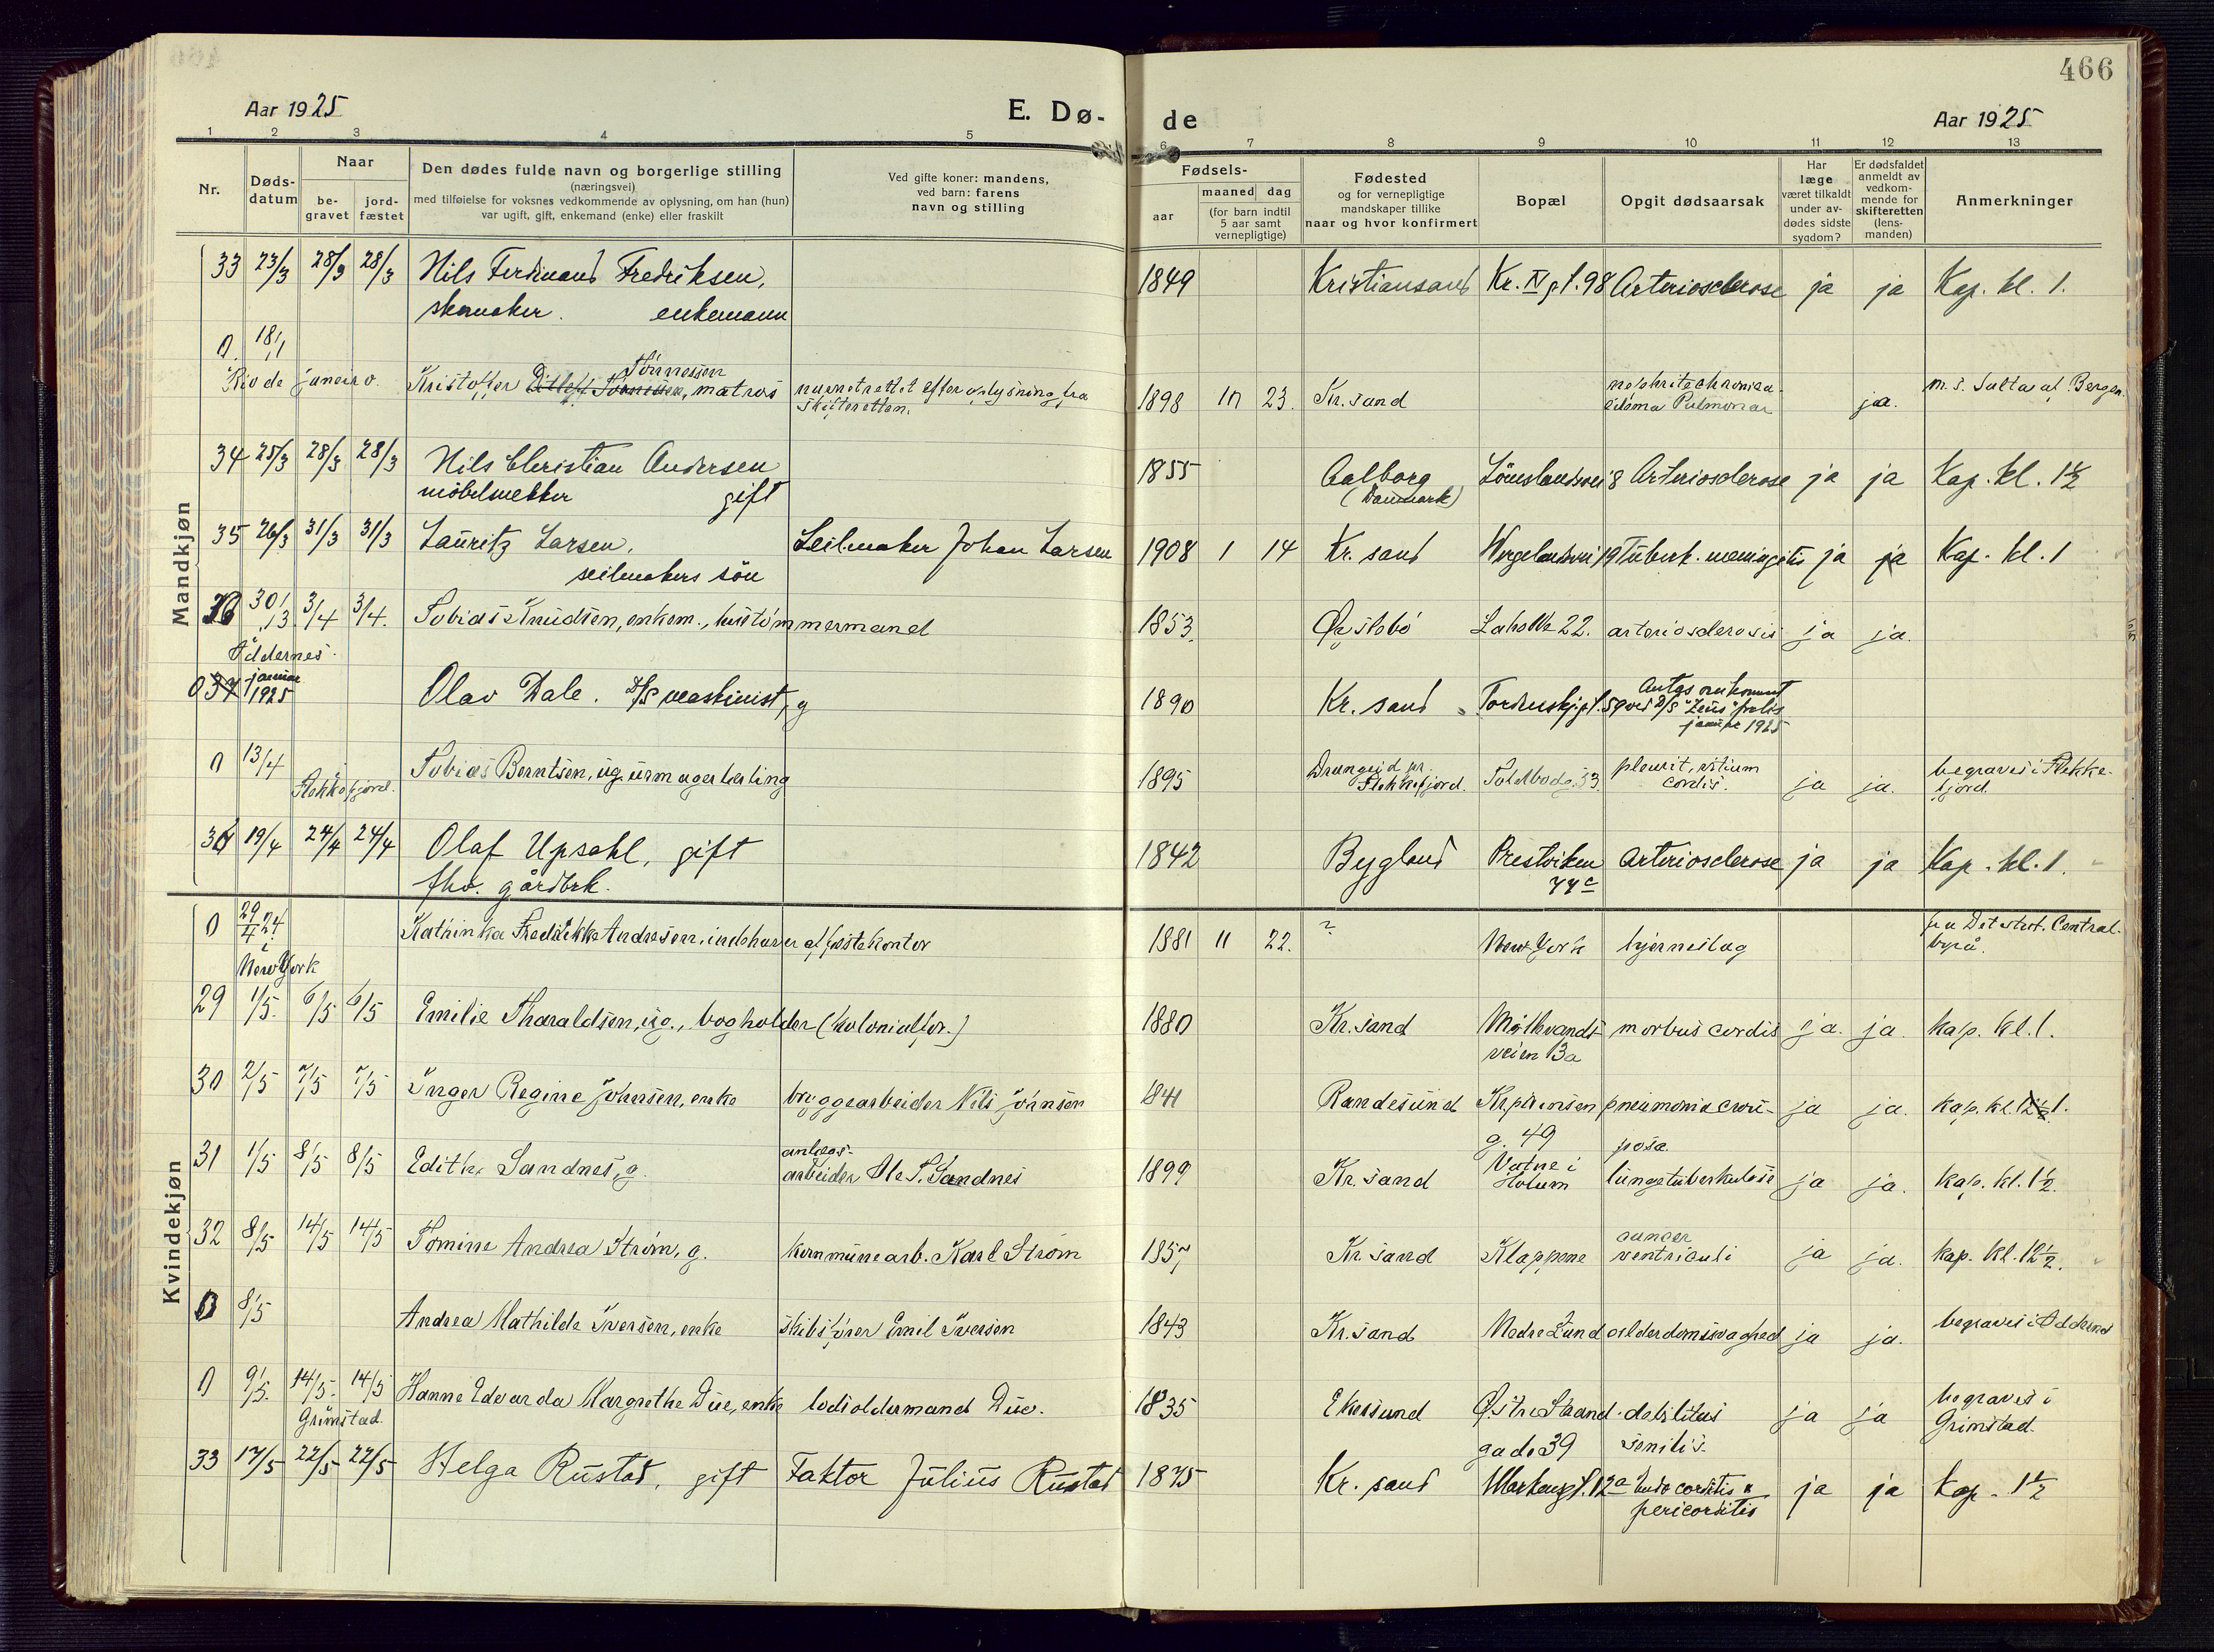 466
Aar 1925 E. Dø- de Aar 1925
1 2 3 4 5 6 7 8 9 10 11 12 13
Nr.
Døds-
datum
Naar
be-
gravet
jord-
fæstet
Den dødes fulde navn og borgerlige stilling
(næringsvei)
med tilføielse for voksnes vedkommende av oplysning, om han (hun)
var ugift, gift, enkemand (enke) eller fraskilt
Ved gifte koner: mandens,
ved barn: farens
navn og stilling
Fødsels-
aar
maaned dag
(for barn indtil
5 aar samt
vernepligtige)
Fødested
og for vernepligtige
mandskaper tillike
naar og hvor konfirmert
Bopæl
Opgit dødsaarsak
Har
læge
været tilkaldt
under av-
dødes sidste
sygdom?
Er dødsfaldet
anmeldt av
vedkom-
mende for
skifteretten
(lens-
manden)
Anmerkninger
Mandkjøn
33 23/3 28/3 28/3 Nils Ferdinand Fredriksen, 1849 Kristiansand Kr. IV gt. 98 Arteriosclerose ja ja Kap. kl. 1.
skomaker. enkemann
0. 18/1
Rio de Janeiro. Kristoffer Ditlef Tönnesen, matros navnet rettet efter oplysning fra 1898 10 23. Kr.sand nephrite chronica ja. m.s. Salta af Bergen.
Tönnessen
skifteretten. Pulmonar
34 25/3 28/3 28/3 Nils Christian Andersen 1855 Aalborg 8 Arteriosclerose ja ja Kap. kl. 1½
møbelsnekker gift (Danmark)
35 26/3 31/3 31/3 Lauritz Larsen, Seilmaker Johan Larsen 1908 1 14 Kr. sand Wergelandsvei 19 Tuberk. meningitis ja ja Kap. kl. 1
seilmakers søn
36 30/3 3/4 3/4. Tobias Knudsen, enkem., hustømmermand 1853. Øislebö 22. arteriosclerosis ja ja.
Oddernes.
0 37 januar 1925 Olav Dale. D/S maskinist, g 1890 Kr. sand Tordenskj.gt. 59 Antas omkommet
ved D/S "Zeus" forlis
januar 1925
0 13/4 Tobias Berntsen, ug. urmagerlærling 1895 Drangeid pr. Toldbodg. 53. pleurit, vitium ja ja. begraves i Flekke-
Flekkefjord. Flekkefjord. cordis. fjord.
36 19/4 24/4 24/4 Olaf Upsahl, gift 1842 Bygland Prestviken Arteriosclerose ja ja Kap. kl. 1.
fhv. gårdbrk. 77c
Kvindekjøn
0 29/4 24. Kathinka Fredrikke Andresen, indehaver af fæstekontor 1881 11 22. ? New York hjerneslag fra Det stat. Central-
i byrå.
New York
29 1/5. 6/5 6/5 Emilie Tharaldsen, ug., bogholder (kolonialfor.) 1880 Kr.sand morbus cordis ja. ja. kap. kl. 1.
veien 3a
30 2/5 7/5 7/5 Inger Regine Johnsen, enke bryggearbeider Nils Johnsen 1841 Randesund Kr.prinsen pneumonia crou- ja ja. kap. kl. 12½ 1.
g. 49 posa.
31 1/5 8/5 8/5 Edith Sandnes, g. anlegs- 1899 Kr. sand Vatne i lungetuberkulose ja ja. kap. kl. 1½.
arbeider Ole S. Sandnes Holum
32 8/5 14/5 14/5 Tomine Andrea Strøm, g. kommunearb. Karl Strøm 1857 Kr. sand Klappene cancer ja ja. kap. kl. 12½.
ventriculi
0 8/5 Andrea Mathilde Iversen, enke skibsfører Emil Iversen 1843 Kr.sand Nedre Lund alderdomsvaghed ja ja. begraves i Oddernes
0 9/5. 14/5. 14/5 Hanne Edvarda Margrethe Due, enke lodsoldermand Due. 1835 Ekersund Østre Strand- debilitas ja ja begraves i
Grimstad. gade 39 senilis. Grimstad.
33 17/5 22/5 22/5 Helga Rustad, gift Faktor Julius Rustad 1875 Kr. sand Markensgt. 12a Endocorditis & ja ja Kap. 1½
pericorditis